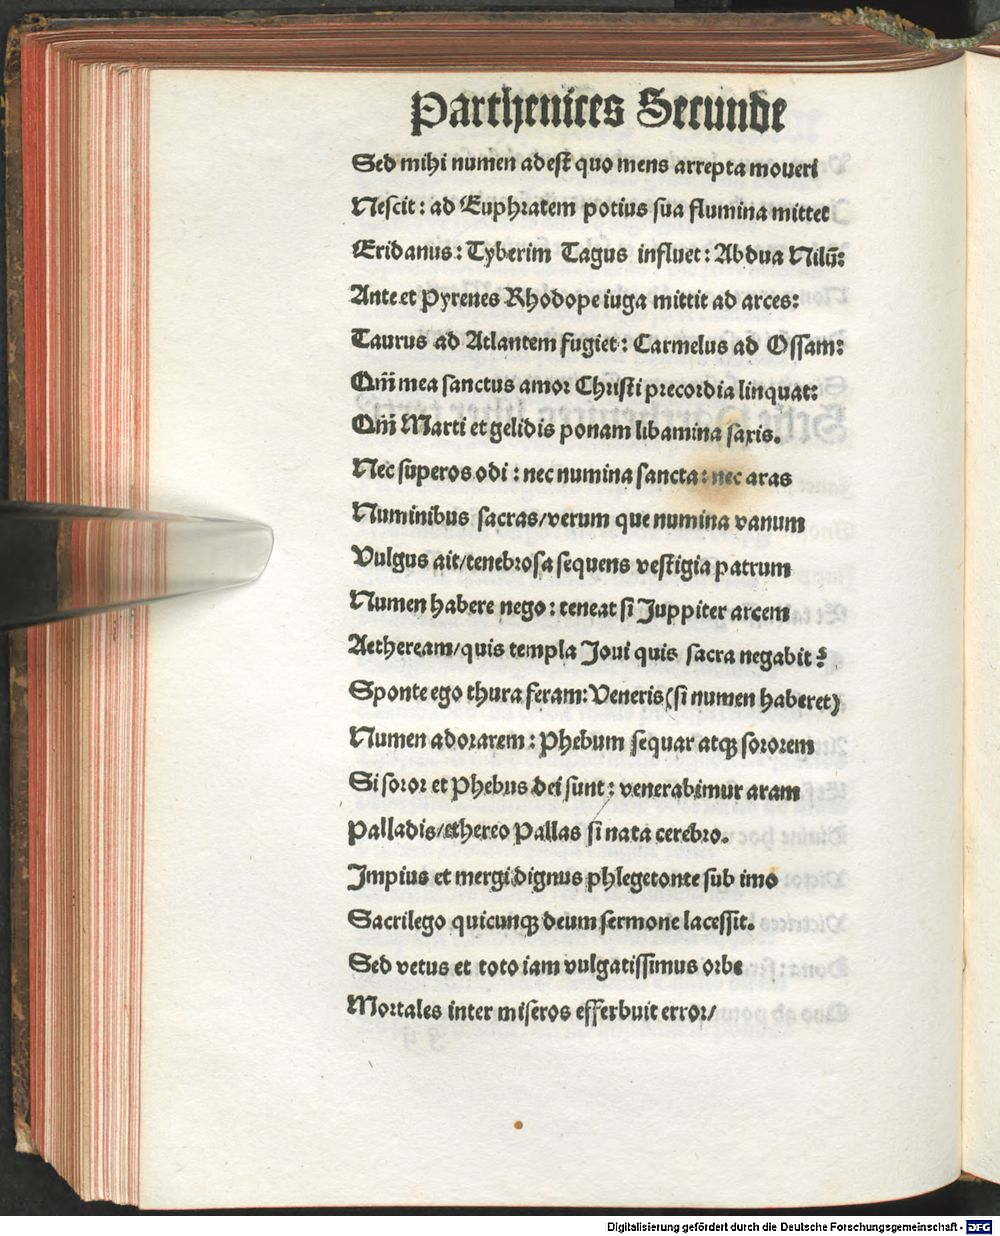 Parthenices Secunde
Sed mihi numen adest quo mens arrepta moueri
Nescit: ad Euphratem potius sua flumina mittet
Eridanus: Tyberim Tagus influet: Abdua Nilũ:
Ante et Pyrenes Rhodope iuga mittit ad arces:
Taurus ad Atlantem fugiet: Carmelus ad Ossam:
Qm̄ mea sanctus amor Christi precordia linquat:
Qm̄ Marti et gelidis ponam libamina saxis.
Nec superos odi: nec numina sancta: nec aras
Numinibus sacras/verum que numina vanum
Vulgus ait/tenebrosa sequens vestigia patrum
Numen habere nego: teneat si Juppiter arcem
Aetheream/quis templa Joui quis sacra negabit?
Sponte ego thura feram: Veneris (si numen haberet)
Numen adorarem: Phebum sequar atqꝫ sororem
Si soror et Phebus dei sunt: venerabimur aram
Palladis/ethereo Pallas si nata cerebro.
Impius et mergi dignus phlegetonte sub imo
Sacrilego quicunqꝫ deum sermone lacessit.
Sed vetus et toto iam vulgatissimus orbe
Mortales inter miseros efferbuit error/
Digitalisierung gefördert durch die Deutsche Forschungsgemeinschaft - DFG